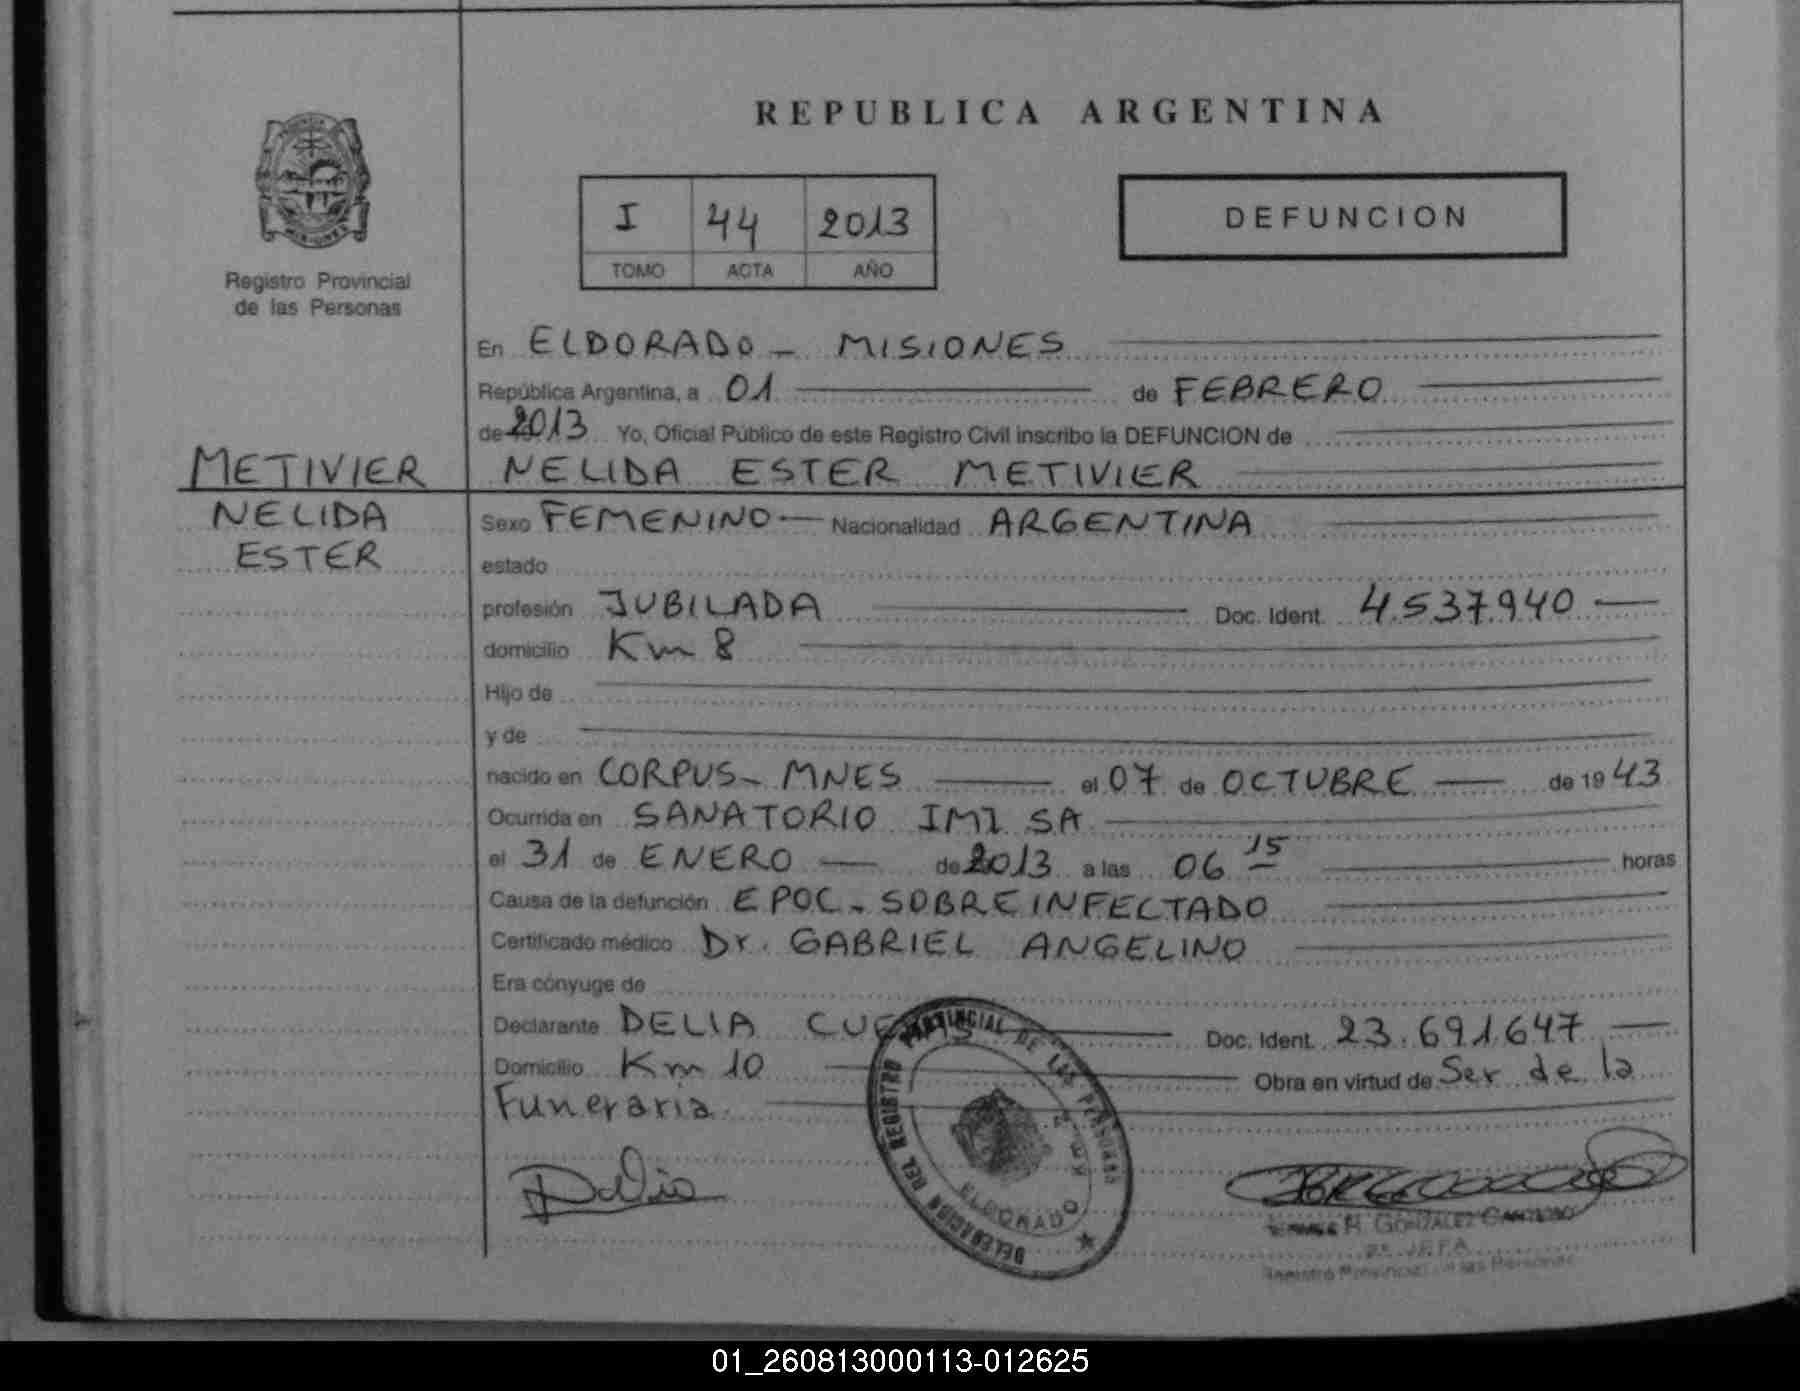 REPUBLICA ARGENTINA
I 44 2013
TOMO ACTA AÑO
DEFUNCION
MISIONES
Registro Provincial
de las Personas
En ELDORADO - MISIONES
República Argentina, a 01 de FEBRERO
de 2013 Yo, Oficial Público de este Registro Civil inscribo la DEFUNCION de
METIVIER
NELIDA
ESTER
NELIDA ESTER METIVIER
Sexo FEMENINO Nacionalidad ARGENTINA
estado
profesión JUBILADA Doc. Ident. 4.537.940
domicilio Km 8
Hijo de
y de
nacido en CORPUS - MNES el 07 de OCTUBRE de 1943
Ocurrida en SANATORIO IMI SA
el 31 de ENERO de 2013 a las 06 15 horas
Causa de la defunción EPOC - SOBREINFECTADO
Certificado médico Dr. GABRIEL ANGELINO
Era cónyuge de
Declarante DELIA Doc. Ident. 23.691.647
Domicilio Km 10 Obra en virtud de Ser de la
Funeraria
DELEGACION DEL REGISTRO PROVINCIAL DE LAS PERSONAS
ELDORADO
H. GONZALEZ
JEFA
Registro Provincial de las Personas
01_260813000113-012625